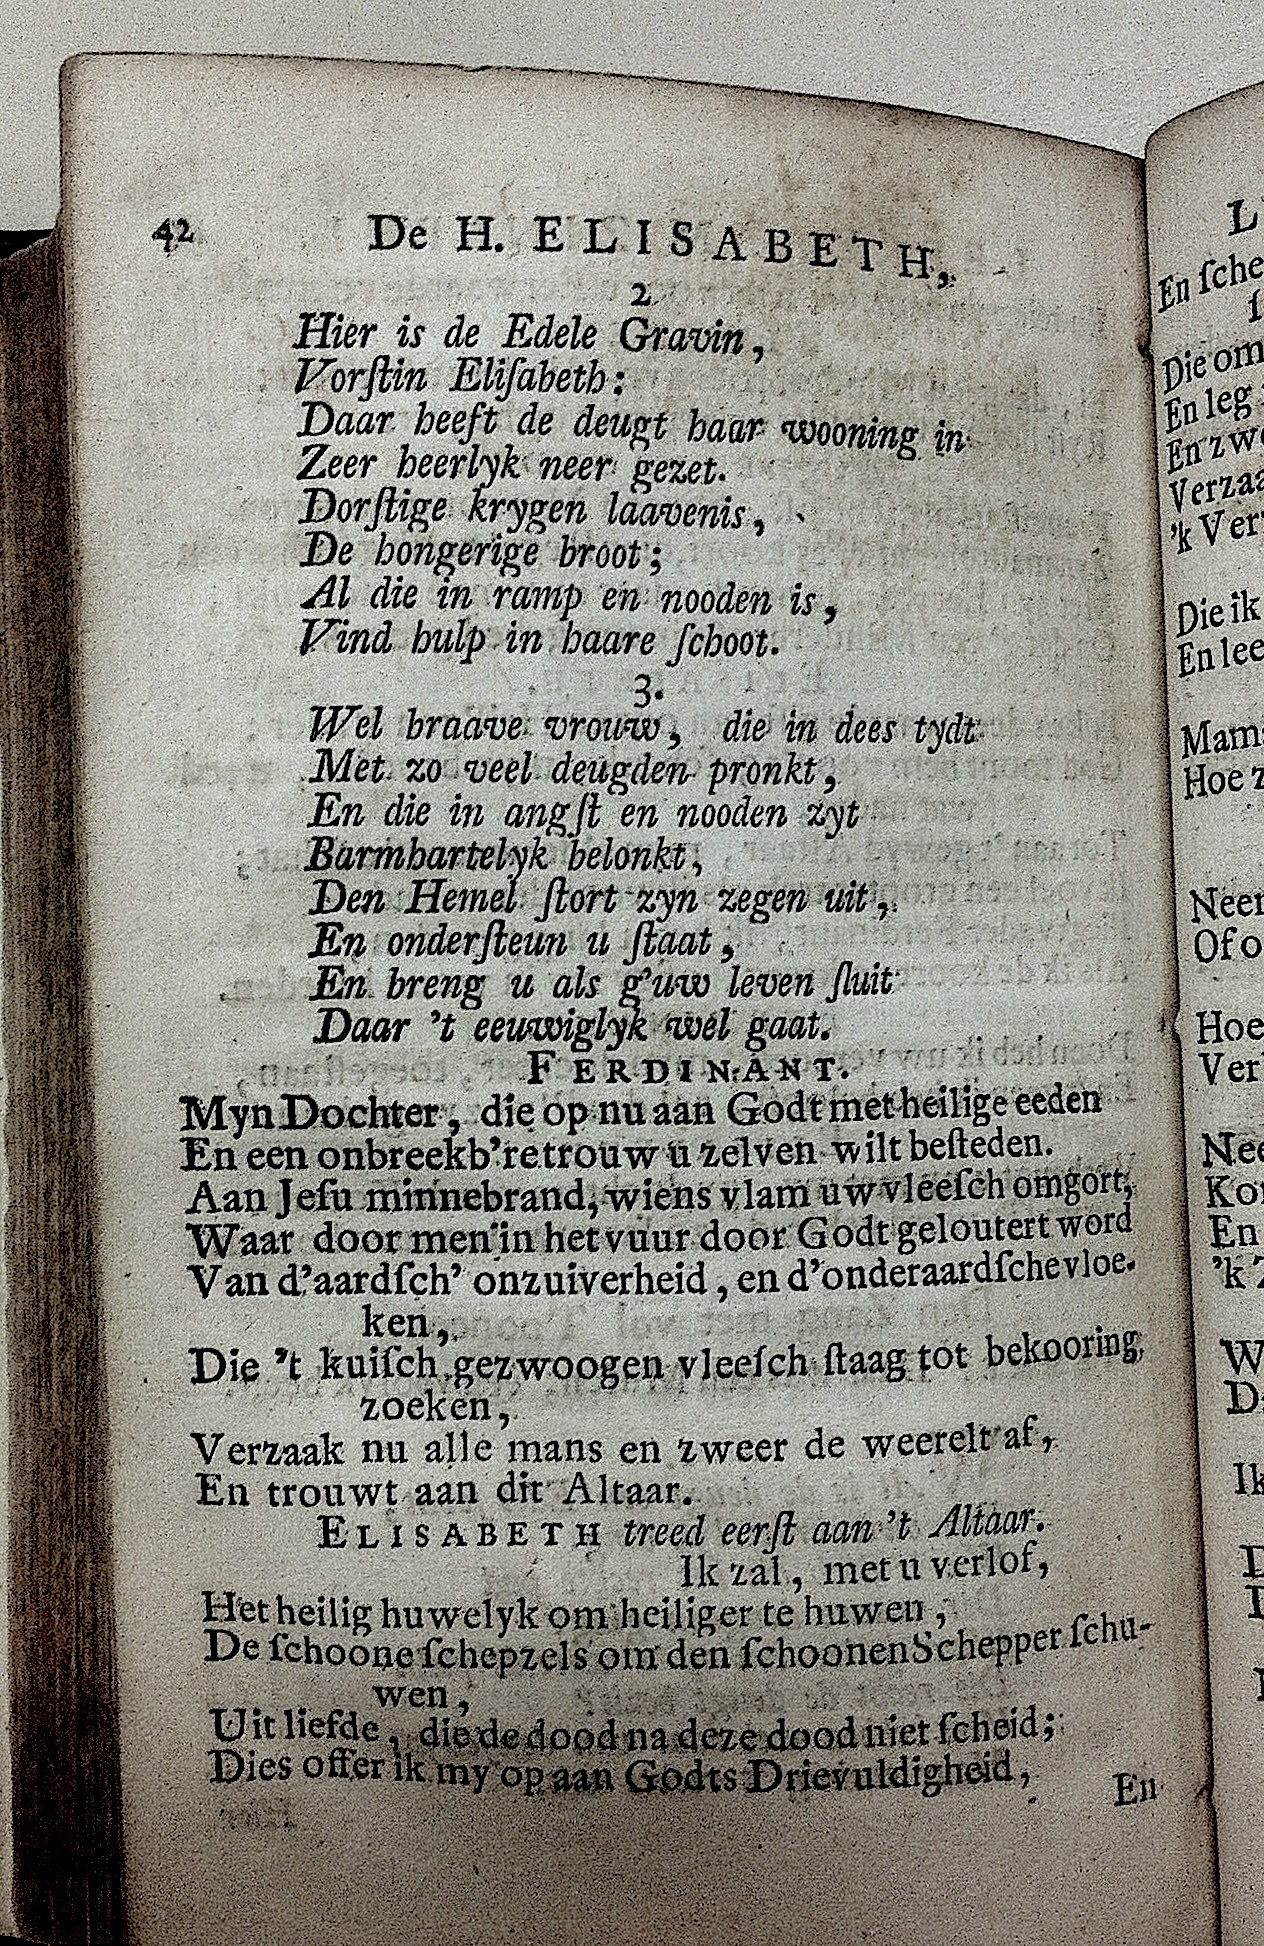 42 De H. ELISABETH,
2
Hier is de Edele Gravin,
Vorſtin Eliſabeth:
Daar heeft de deugt haar wooning in
Zeer heerlyk neer gezet.
Dorſtige krygen laavenis,
De hongerige broot;
Al die in ramp en nooden is,
Vind hulp in haare ſchoot.
3.
Wel braave vrouw, die in dees tydt
Met zo veel deugden pronkt,
En die in angſt en nooden zyt
Barmhartelyk belonkt,
Den Hemel ſtort zyn zegen uit,
En onderſteun u ſtaat,
En breng u als g'uw leven ſluit
Daar 't eeuwiglyk wel gaat.
FERDINANT.
Myn Dochter, die op nu aan Godt met heilige eeden
En een onbreekb're trouw u zelven wilt beſteden.
Aan Jeſu minnebrand, wiens vlam uw vleeſch omgort,
Waar door men in het vuur door Godt geloutert word
Van d'aardſch' onzuiverheid, en d'onderaardſche vloe-
ken,
Die 't kuiſch gezwoogen vleeſch ſtaag tot bekooring
zoeken,
Verzaak nu alle mans en zweer de weerelt af,
En trouwt aan dit Altaar.
ELISABETH treed eerſt aan 't Altaar.
Ik zal, met u verlof,
Het heilig huwelyk om heiliger te huwen,
De ſchoone ſchepzels om den ſchoonen Schepper ſchu-
wen,
Uit liefde, die de dood na deze dood niet ſcheid;
Dies offer ik my op aan Godts Drievuldigheid,
En
L
En ſche
Die om
En leg
En zw
Verzaa
'k Ver
Die ik
En lee
Mam
Hoe z
Neer
Of o
Hoe
Ver
Nee
Ko
En
'k Z
W
D
Ik